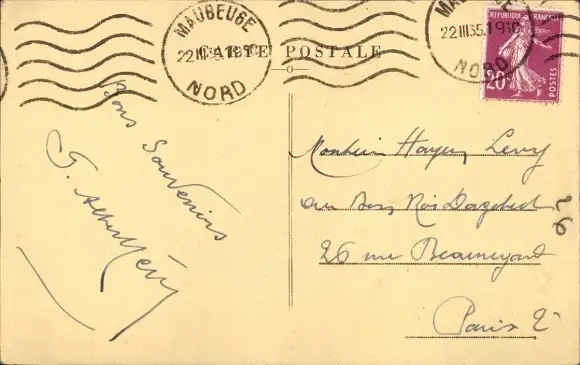 MAUBEUGE
22 III 35. 19
NORD
CARTE POSTALE
22 III 35. 19
NORD
REPUBLIQUE FRANÇAISE
20c
POSTES
Bons Souvenirs
Monsieur Hayem Levy
au bon Roi Dagobert
26
26 rue Beauregard
Paris 2